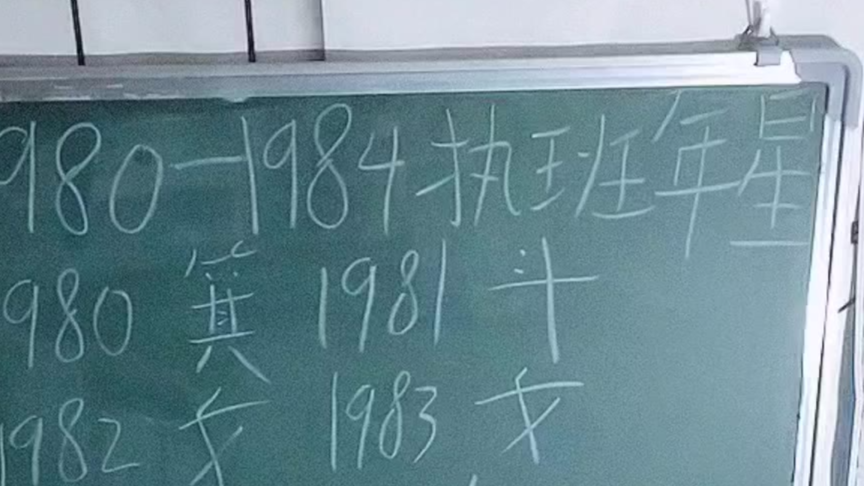 1980-1984执班年星
1980 箕 1981 斗
1982 女 1983 女